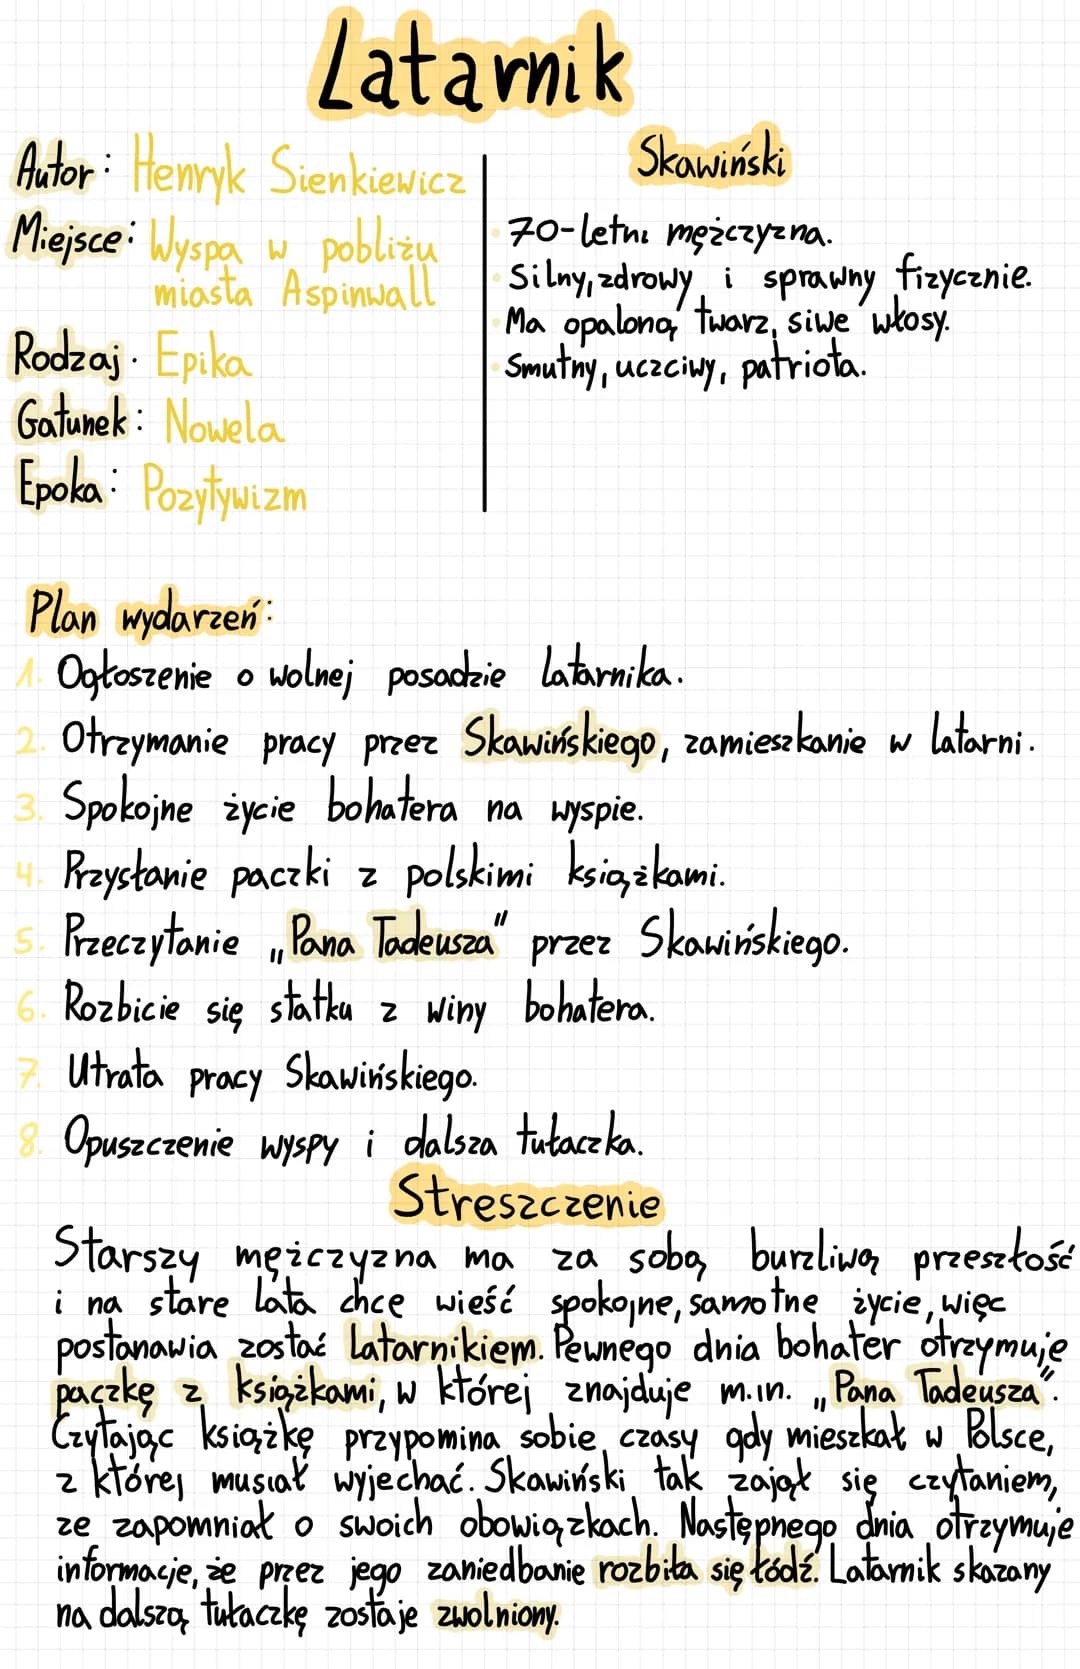 Latarnik
Autor: Henryk Sienkiewicz
Miejsce: Wyspa w pobliżu
miasta Aspinwall
Rodzaj: Epika
Gatunek: Nowela
Epoka: Pozytywizm
Skawiński
70-letni mężczyzna.
Silny, zdrowy i sprawny fizycznie.
Ma opaloną twarz, siwe włosy.
Smutny, uczciwy, patriota.
Plan wydarzeń:
1. Ogłoszenie o wolnej posadzie latarnika.
2. Otrzymanie pracy przez Skawińskiego, zamieszkanie w latarni.
3. Spokojne życie bohatera na wyspie.
4. Przysłanie paczki z polskimi książkami.
5. Przeczytanie „Pana Tadeusza" przez Skawińskiego.
6. Rozbicie się statku z winy bohatera.
7. Utrata pracy Skawińskiego.
8. Opuszczenie wyspy i dalsza tułaczka.
Streszczenie
Starszy mężczyzna ma za sobą burzliwą przeszłość
i na stare lata chce wieść spokojne, samotne życie, więc
postanawia zostać latarnikiem. Pewnego dnia bohater otrzymuje
paczkę z książkami, w której znajduje m.in. „Pana Tadeusza".
Czytając książkę przypomina sobie czasy gdy mieszkał w Polsce,
z której musiał wyjechać. Skawiński tak zajął się czytaniem,
ze zapomniał o swoich obowiązkach. Następnego dnia otrzymuje
informacje, że przez jego zaniedbanie rozbiła się łódź. Latarnik skazany
na dalszą tułaczkę zostaje zwolniony.